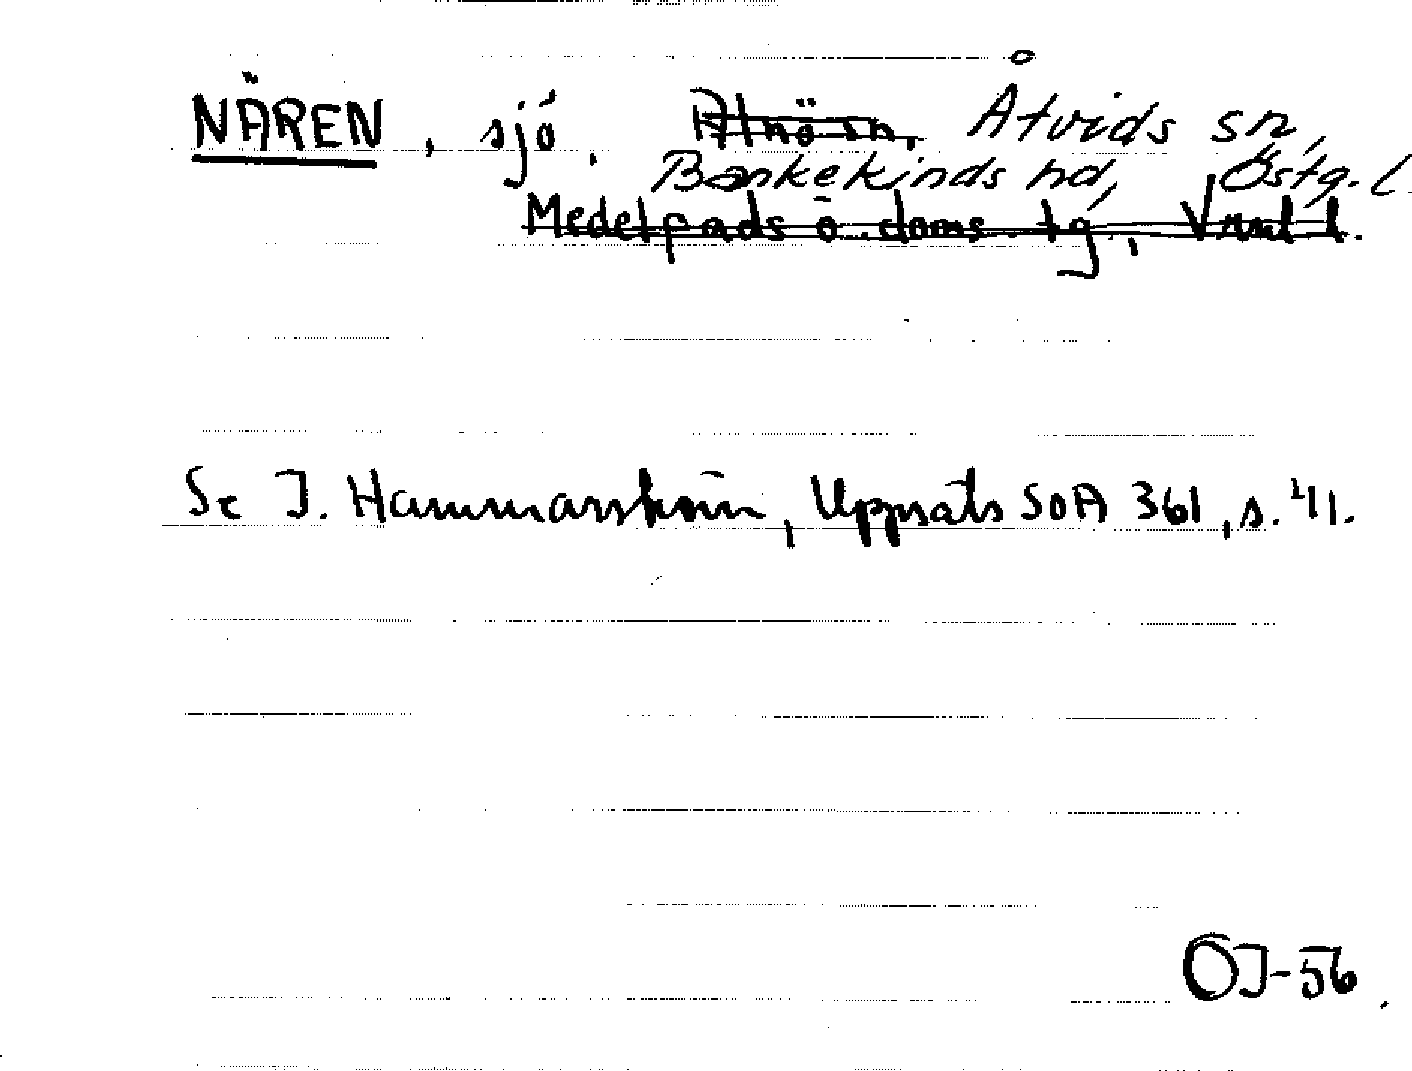 NÄREN, sjö. Alnö sn, Åtvids sn,
Bankekinds hd, Östg. l
Medelpads ö. doms. tg, Vnrl l.
Se I. Hammarström, Uppsats SOA 361, s. 41.
ÖJ-56